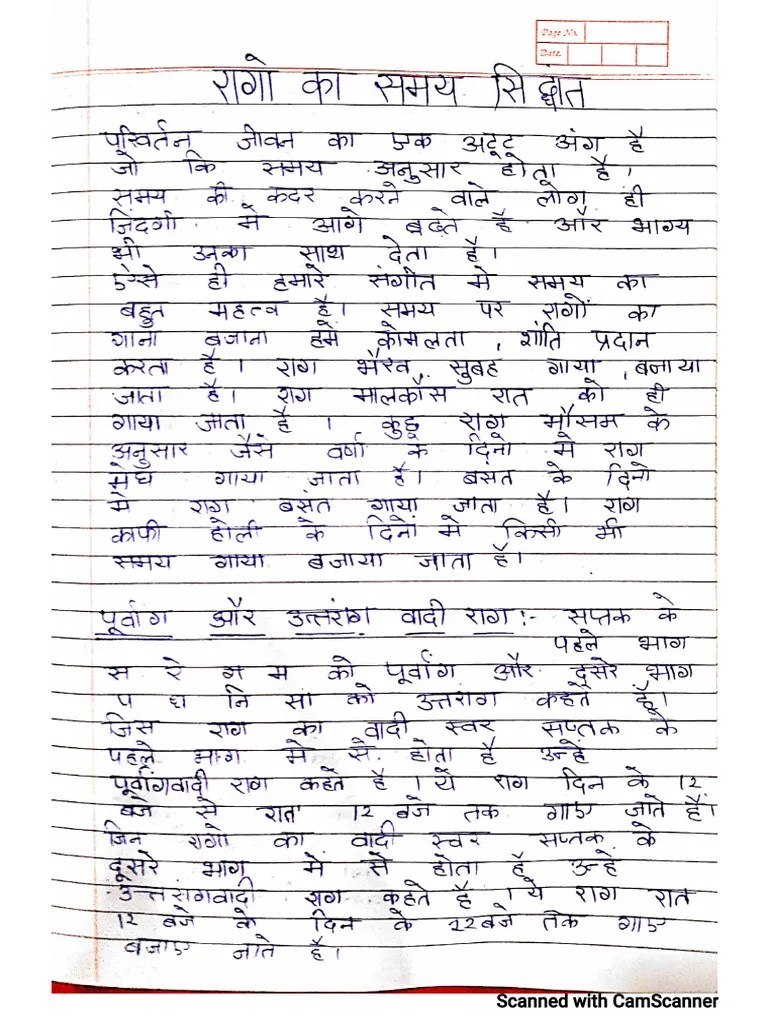 Page No.
Date
रागो का समय सिद्धांत
परिवर्तन जीवन का एक अटूट अंग है
जो कि समय अनुसार होता है।
समय की कदर करने वाले लोग ही
जिंदगी में आगे बढ़ते है और भाग्य
भी उनका साथ देता है।
एसे ही हमारे संगीत मे समय का
बहुत महत्व है। समय पर रागों का
गाना बजाना हमे कोमलता , शांति प्रदान
करता है। राग भैरव, सुबह गाया, बजाया
जाता है। राग मालकौंस रात को ही
गाया जाता है । कुछ राग मौसम के
अनुसार जैसे वर्षा के दिनो मे राग
मेघ गाया जाता है। बसंत के दिनो
मे राग बसंत गाया जाता है। राग
काफी होली के दिनों मे किसी भी
समय गाया बजाया जाता है।
पूर्वांग और उत्तरांग वादी राग :- सप्तक के
पहले भाग
स रे ग म को पूर्वांग और दूसरे भाग
प ध नि सां को उत्तरांग कहते है।
जिस राग का वादी स्वर सप्तक के
पहले भाग मे से होता है उन्हें
पूर्वांगवादी राग कहते है । ये राग दिन के 12
बजे से रात 12 बजे तक गाए जाते है।
जिन रागो का वादी स्वर सप्तक के
दूसरे भाग में से होता है उन्हे
उत्तरांगवादी राग कहते है । ये राग रात
12 बजे के दिन के 12 बजे तक गाए
बजाए जाते है।
Scanned with CamScanner